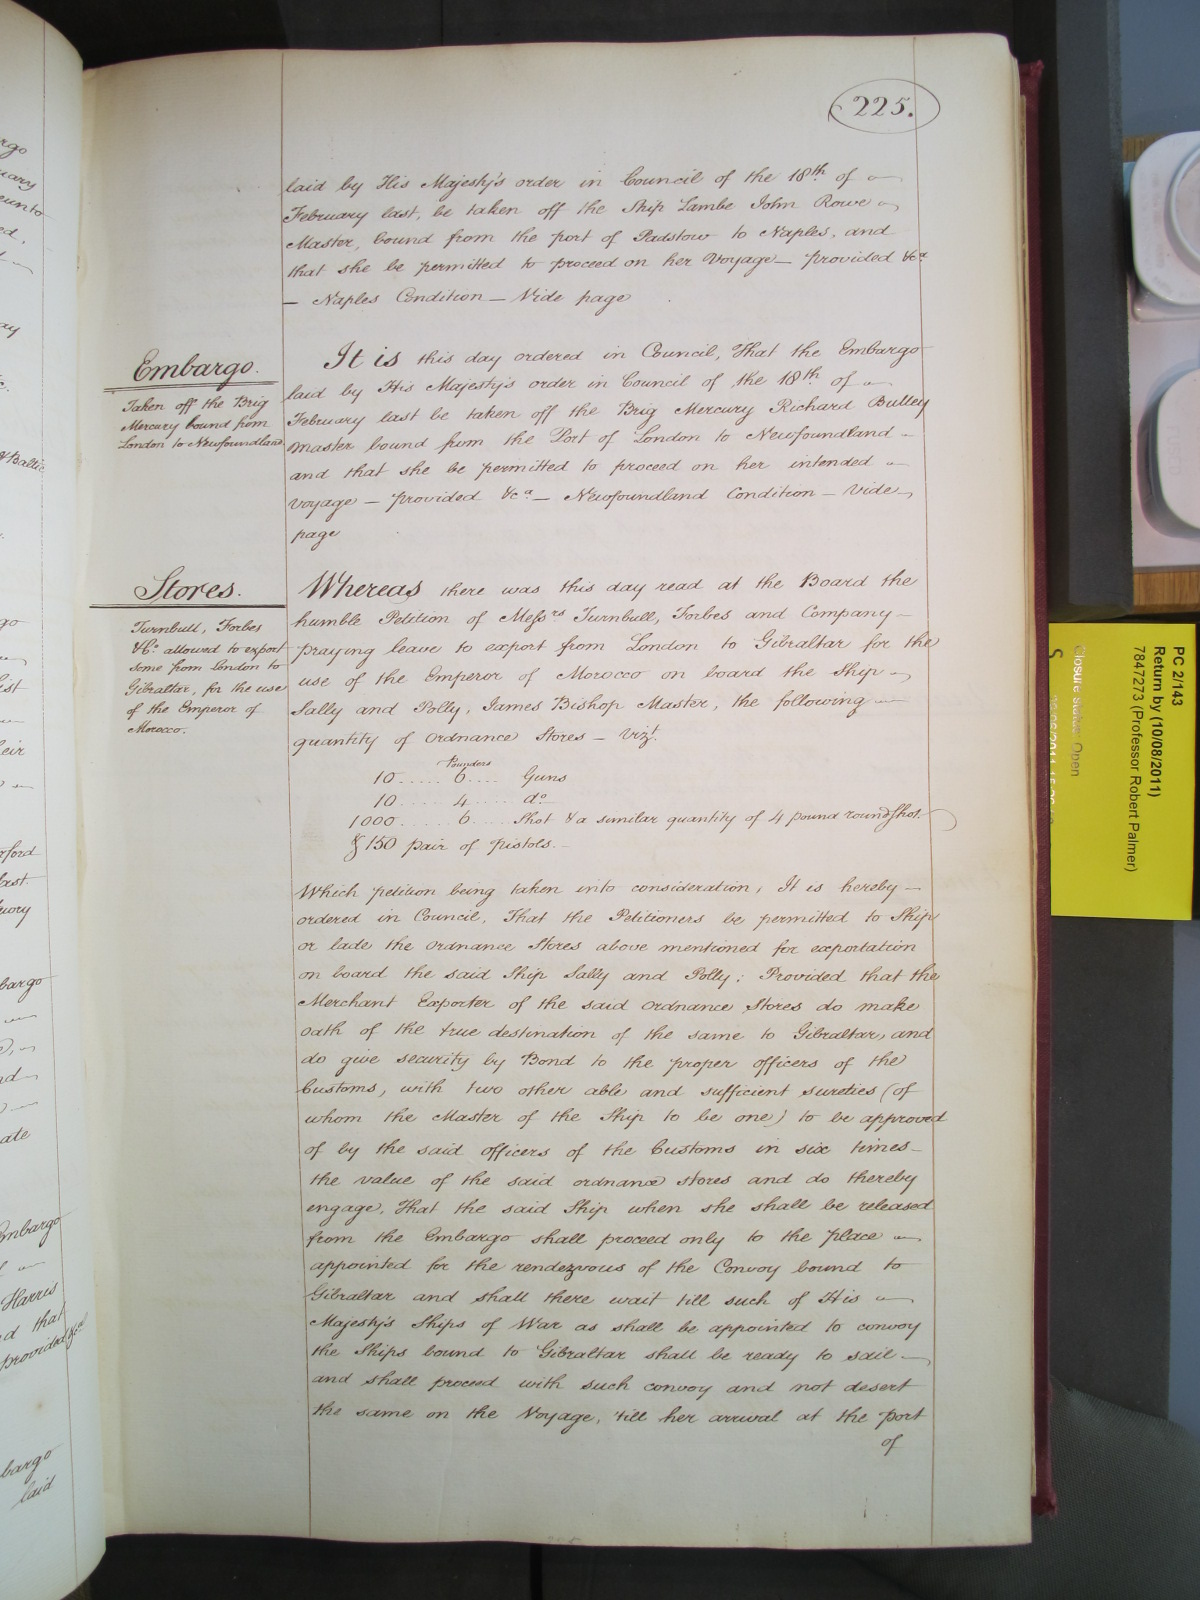 225.
laid by His Majesty's order in Council of the 18th of
February last, be taken off the Ship Lambe John Rowe
Master, bound from the port of Padstow to Naples, and
that she be permitted to proceed on her Voyage — provided &ca
— Naples Condition — Vide page
Embargo.
Taken off the Brig
Mercury bound from
London to Newfoundland.
It is this day ordered in Council, That the Embargo
laid by His Majesty's order in Council of the 18th of
February last be taken off the Brig Mercury Richard Bulley
Master bound from the Port of London to Newfoundland —
and that she be permitted to proceed on her intended
voyage — provided &ca — Newfoundland Condition — Vide
page
Stores.
Turnbull, Forbes
&Co. allowed to export
some from London to
Gibraltar, for the use
of the Emperor of
Morocco.
Whereas there was this day read at the Board the
humble Petition of Messrs Turnbull, Forbes and Company —
praying leave to export from London to Gibraltar for the
use of the Emperor of Morocco on board the Ship
Sally and Polly, James Bishop Master, the following
quantity of Ordnance Stores — Vizt.
Pounders
10..... 6.... Guns
10.... 4..... do
1000..... 6..... Shot & a similar quantity of 4 pound round Shot.
& 150 pair of pistols. —
Which petition being taken into consideration, It is hereby —
ordered in Council, That the Petitioners be permitted to Ship
or lade the Ordnance Stores above mentioned for exportation
on board the said Ship Sally and Polly; Provided that the
Merchant Exporter of the said Ordnance Stores do make
oath of the true destination of the same to Gibraltar, and
do give security by Bond to the proper officers of the
Customs, with two other able and sufficient sureties (of
whom the Master of the Ship to be one) to be approved
of by the said officers of the Customs in six times —
the value of the said ordnance stores and do thereby
engage, That the said Ship when she shall be released
from the Embargo shall proceed only to the place
appointed for the rendezvous of the Convoy bound to
Gibraltar and shall there wait till such of His
Majesty's Ships of War as shall be appointed to convoy
the Ships bound to Gibraltar shall be ready to sail —
and shall proceed with such convoy and not desert
the same on the Voyage, 'till her arrival at the port
of
PC 2/143
Return by (10/08/2011)
7847273 (Professor Robert Palmer)
Closure Status: Open
S